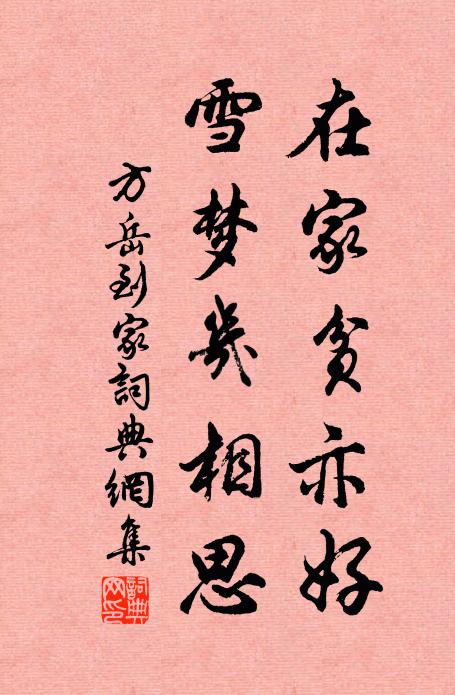 在家貧亦好
雪梦幾相思
方岳到家詞典網集
詞典网印